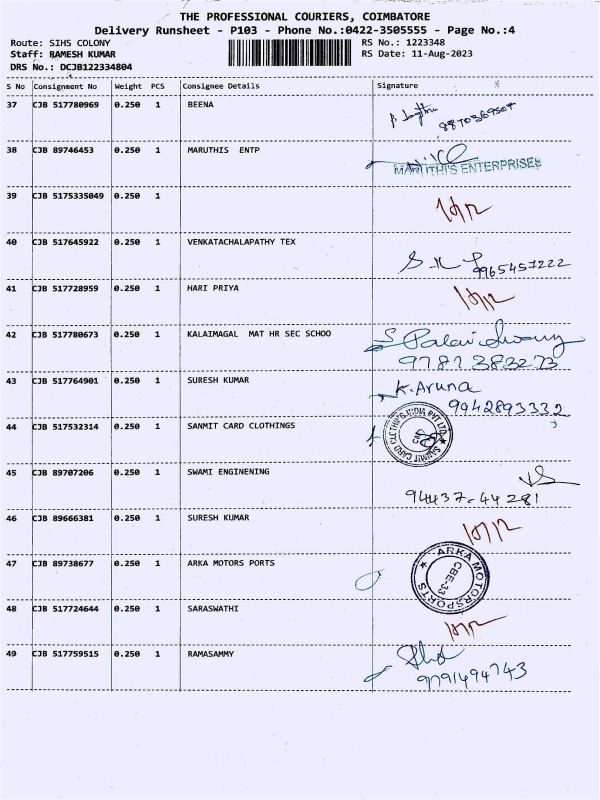 THE PROFESSIONAL COURIERS, COIMBATORE
Delivery Runsheet - P103 - Phone No.:0422-3505555 - Page No.:4
Route: SIHS COLONY RS No.: 1223348
Staff: RAMESH KUMAR RS Date: 11-Aug-2023
DRS No.: DCJB122334804
S No Consignment No Weight PCS Consignee Details Signature
37 CJB 517780969 0.250 1 BEENA
8870369567
38 CJB 89746453 0.250 1 MARUTHIS ENTP
MARUTHI'S ENTERPRISES
39 CJB 5175335049 0.250 1
40 CJB 517645922 0.250 1 VENKATACHALAPATHY TEX
9965457222
41 CJB 517728959 0.250 1 HARI PRIYA
42 CJB 517780673 0.250 1 KALAIMAGAL MAT HR SEC SCHOO
9787383273
43 CJB 517764901 0.250 1 SURESH KUMAR K.Aruna
9942893332
44 CJB 517532314 0.250 1 SANMIT CARD CLOTHINGS
45 CJB 89707206 0.250 1 SWAMI ENGINENING
94437-44281
46 CJB 89666381 0.250 1 SURESH KUMAR
47 CJB 89738677 0.250 1 ARKA MOTORS PORTS
ARKA MOTORSPORTS
CBE-33
48 CJB 517724644 0.250 1 SARASWATHI
49 CJB 517759515 0.250 1 RAMASAMMY
9791494743